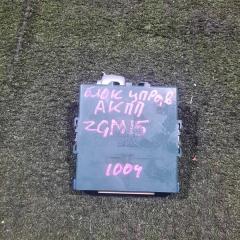 блок управ
АКПП
ZGM15
1004